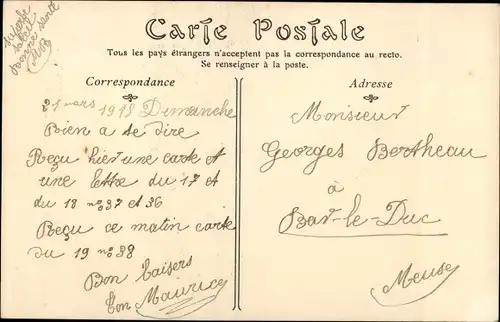 Carte Postale
Tous les pays étrangers n'acceptent pas la correspondance au recto.
Se renseigner à la poste.
Correspondance
21 mars 1915 Dimanche
Rien a se dire
Reçu hier une carte et
une lettre du 17 et
du 18 nos 37 et 36
Reçu ce matin carte
du 19 no 38
Bon baisers
ton Maurice
Adresse
Monsieur
Georges Bertheau
à
Bar-le-Duc
Meuse
Bonne santé